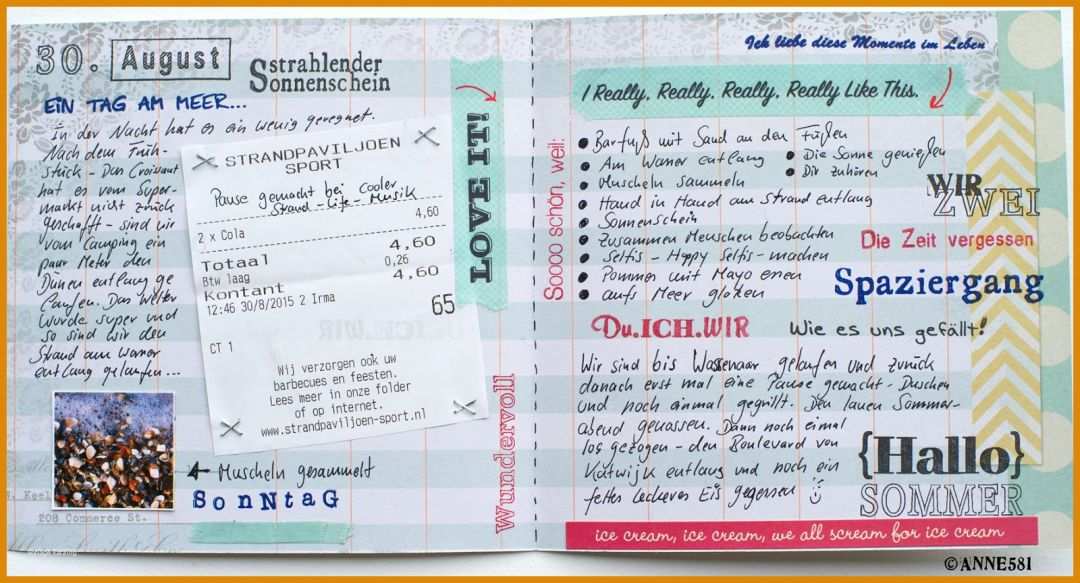 30. August
Strahlender
Sonnenschein
EIN TAG AM MEER...
In der Nacht hat es ein wenig geregnet.
Nach dem Früh-
stück - Das Croissant
hat es vom Super-
markt nicht zurück
geschafft - sind wir
vom Camping ein
paar Meter den
Dünen entlang ge
laufen. Das Wetter
wurde super und
so sind wir den
Strand am Wasser
entlang gelaufen...
STRANDPAVILJOEN
SPORT
Pause gemacht bei cooler
Strand-Life-Musik
4,60
2 x Cola
Totaal 4,60
Btw laag 0,26
Kontant 4,60
12:46 30/8/2015 2 Irma
65
CT 1
Wij verzorgen ook uw
barbecues en feesten.
Lees meer in onze folder
of op internet.
www.strandpaviljoen-sport.nl
Muscheln gesammelt
SONNTAG
208 Commerce St.
LOVE IT!
wundervoll
Soooo schön, weil:
Ich liebe diese Momente im Leben
I Really, Really, Really, Really Like This.
Barfuß mit Sand an den Füßen
Am Wasser entlang
Die Sonne genießen
Muscheln sammeln
Dir zuhören
Hand in Hand am Strand entlang
Sonnenschein
Zusammen Menschen beobachten
Selfis - Happy Selfis - machen
Pommes mit Mayo essen
aufs Meer glotzen
WIR
ZWEI
Die Zeit vergessen
Spaziergang
Du.ICH.WIR
Wie es uns gefällt!
Wir sind bis Wassenaar gelaufen und zurück
danach erst mal eine Pause gemacht - Duschen
und noch einmal gegrillt. Den lauen Sommer-
abend genossen. Dann noch einmal
los gezogen - den Boulevard von
Katwijk entlang und noch ein
fettes leckeres Eis gegessen
{Hallo}
SOMMER
ice cream, ice cream, we all scream for ice cream
©ANNE581